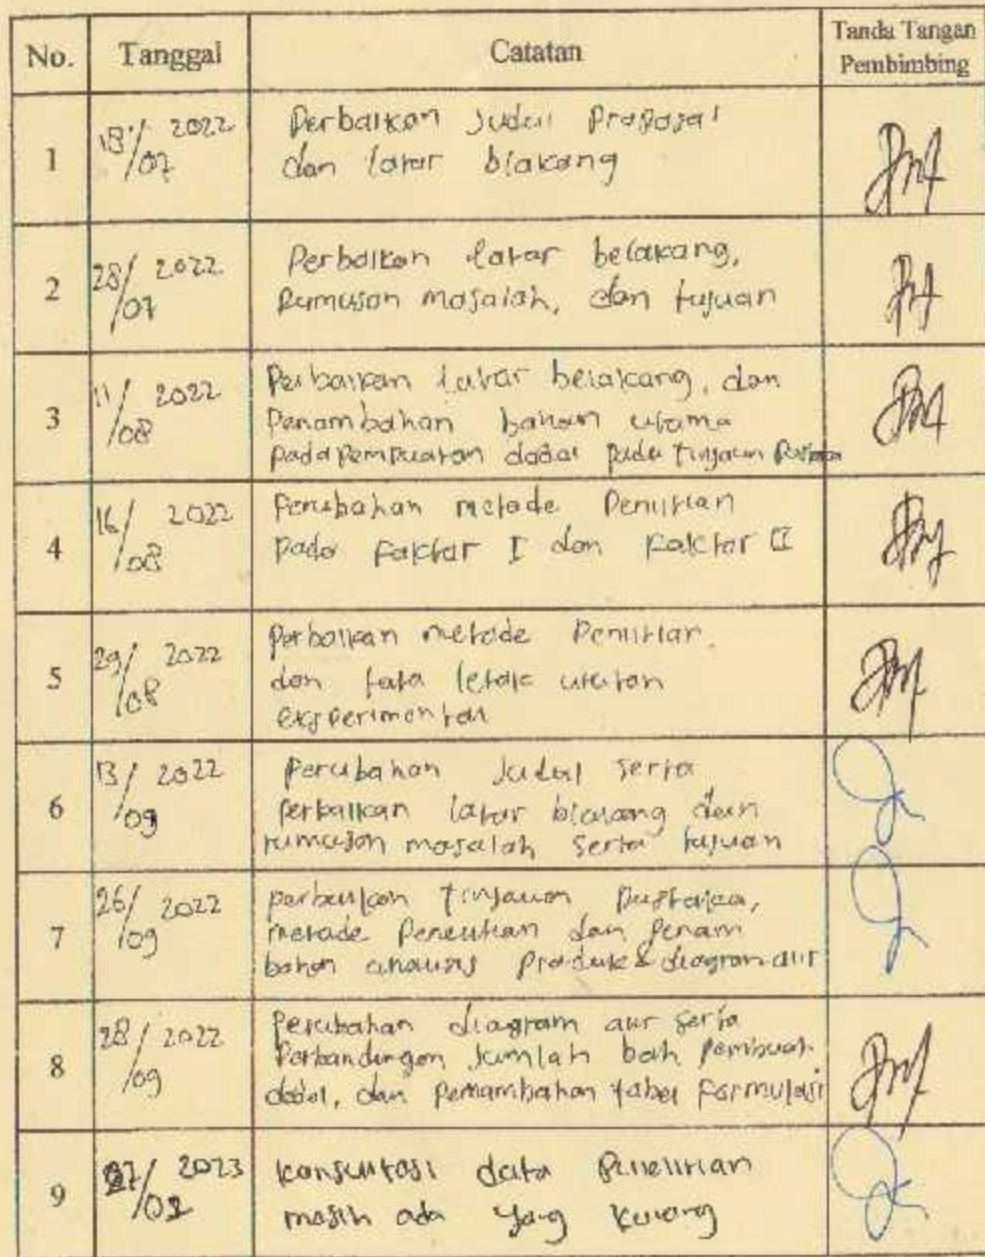 No. Tanggal Catatan Tanda Tangan
Pembimbing
1 18/07 2022 Perbaikan Judul Proposal
dan latar blakang
2 28/07 2022 Perbaikan latar belakang,
Rumusan masalah, dan tujuan
3 11/08 2022 Perbaikan latar belakang, dan
Penambahan bahan utama
pada pembuatan dodol pada tinjaun
4 16/08 2022 Perubahan metode Penilitian
pada Faktor I dan Faktor II
5 29/08 2022 Perbaikan metode Penilitian
dan tata letak urutan
eksperimental
6 13/09 2022 Perubahan Judul serta
perbaikan latar blakang dan
rumusan masalah serta tujuan
7 26/09 2022 perbaikan tinjauan pustakaa,
metode Penelitian dan Penam
bahan analisis Produk & diagram alir
8 28/09 2022 Perubahan diagram alir serta
Perbandingan Jumlah bah Pembuat
dodol, dan penambahan tabel Formulasi
9 2023 Konsultasi data Penelitian
masih ada yang kurang